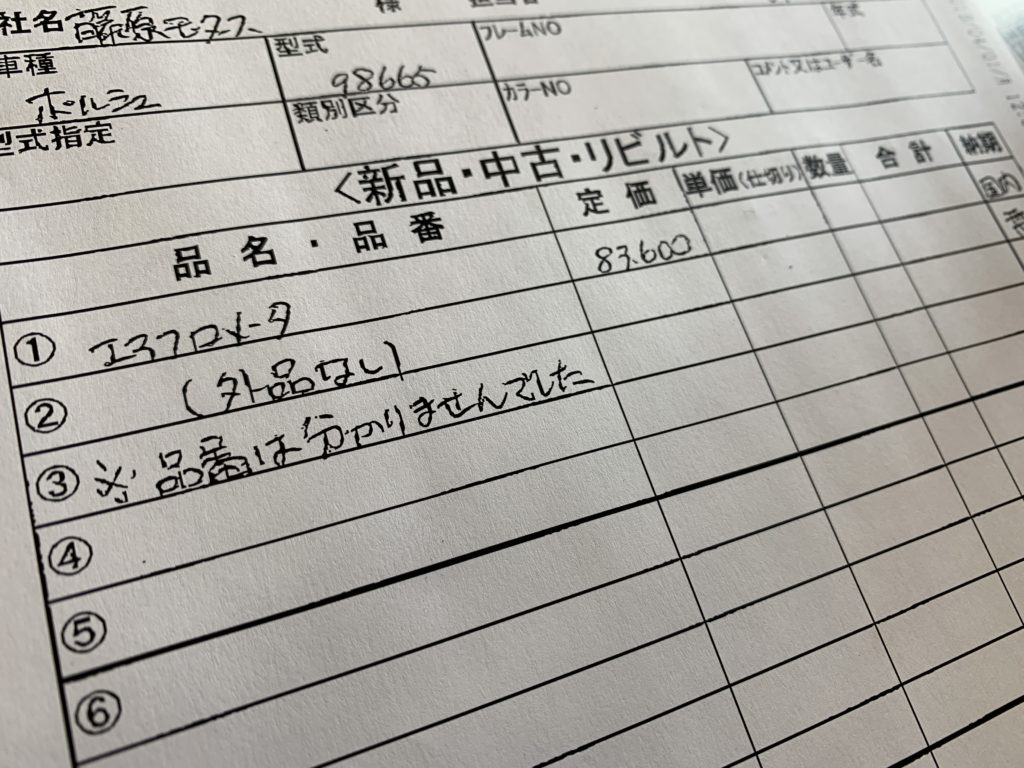 社名 藤原モータース 様
車種 型式 フレームNO 年式
ポルシェ 98665
型式指定 類別区分 カラーNO コメント又はユーザー名
<新品・中古・リビルト>
品名・品番 定価 単価(仕切り) 数量 合計 納期
① エアフロメータ 83.600 国内
② (外品なし)
③ ※品番は分かりませんでした
④
⑤
⑥